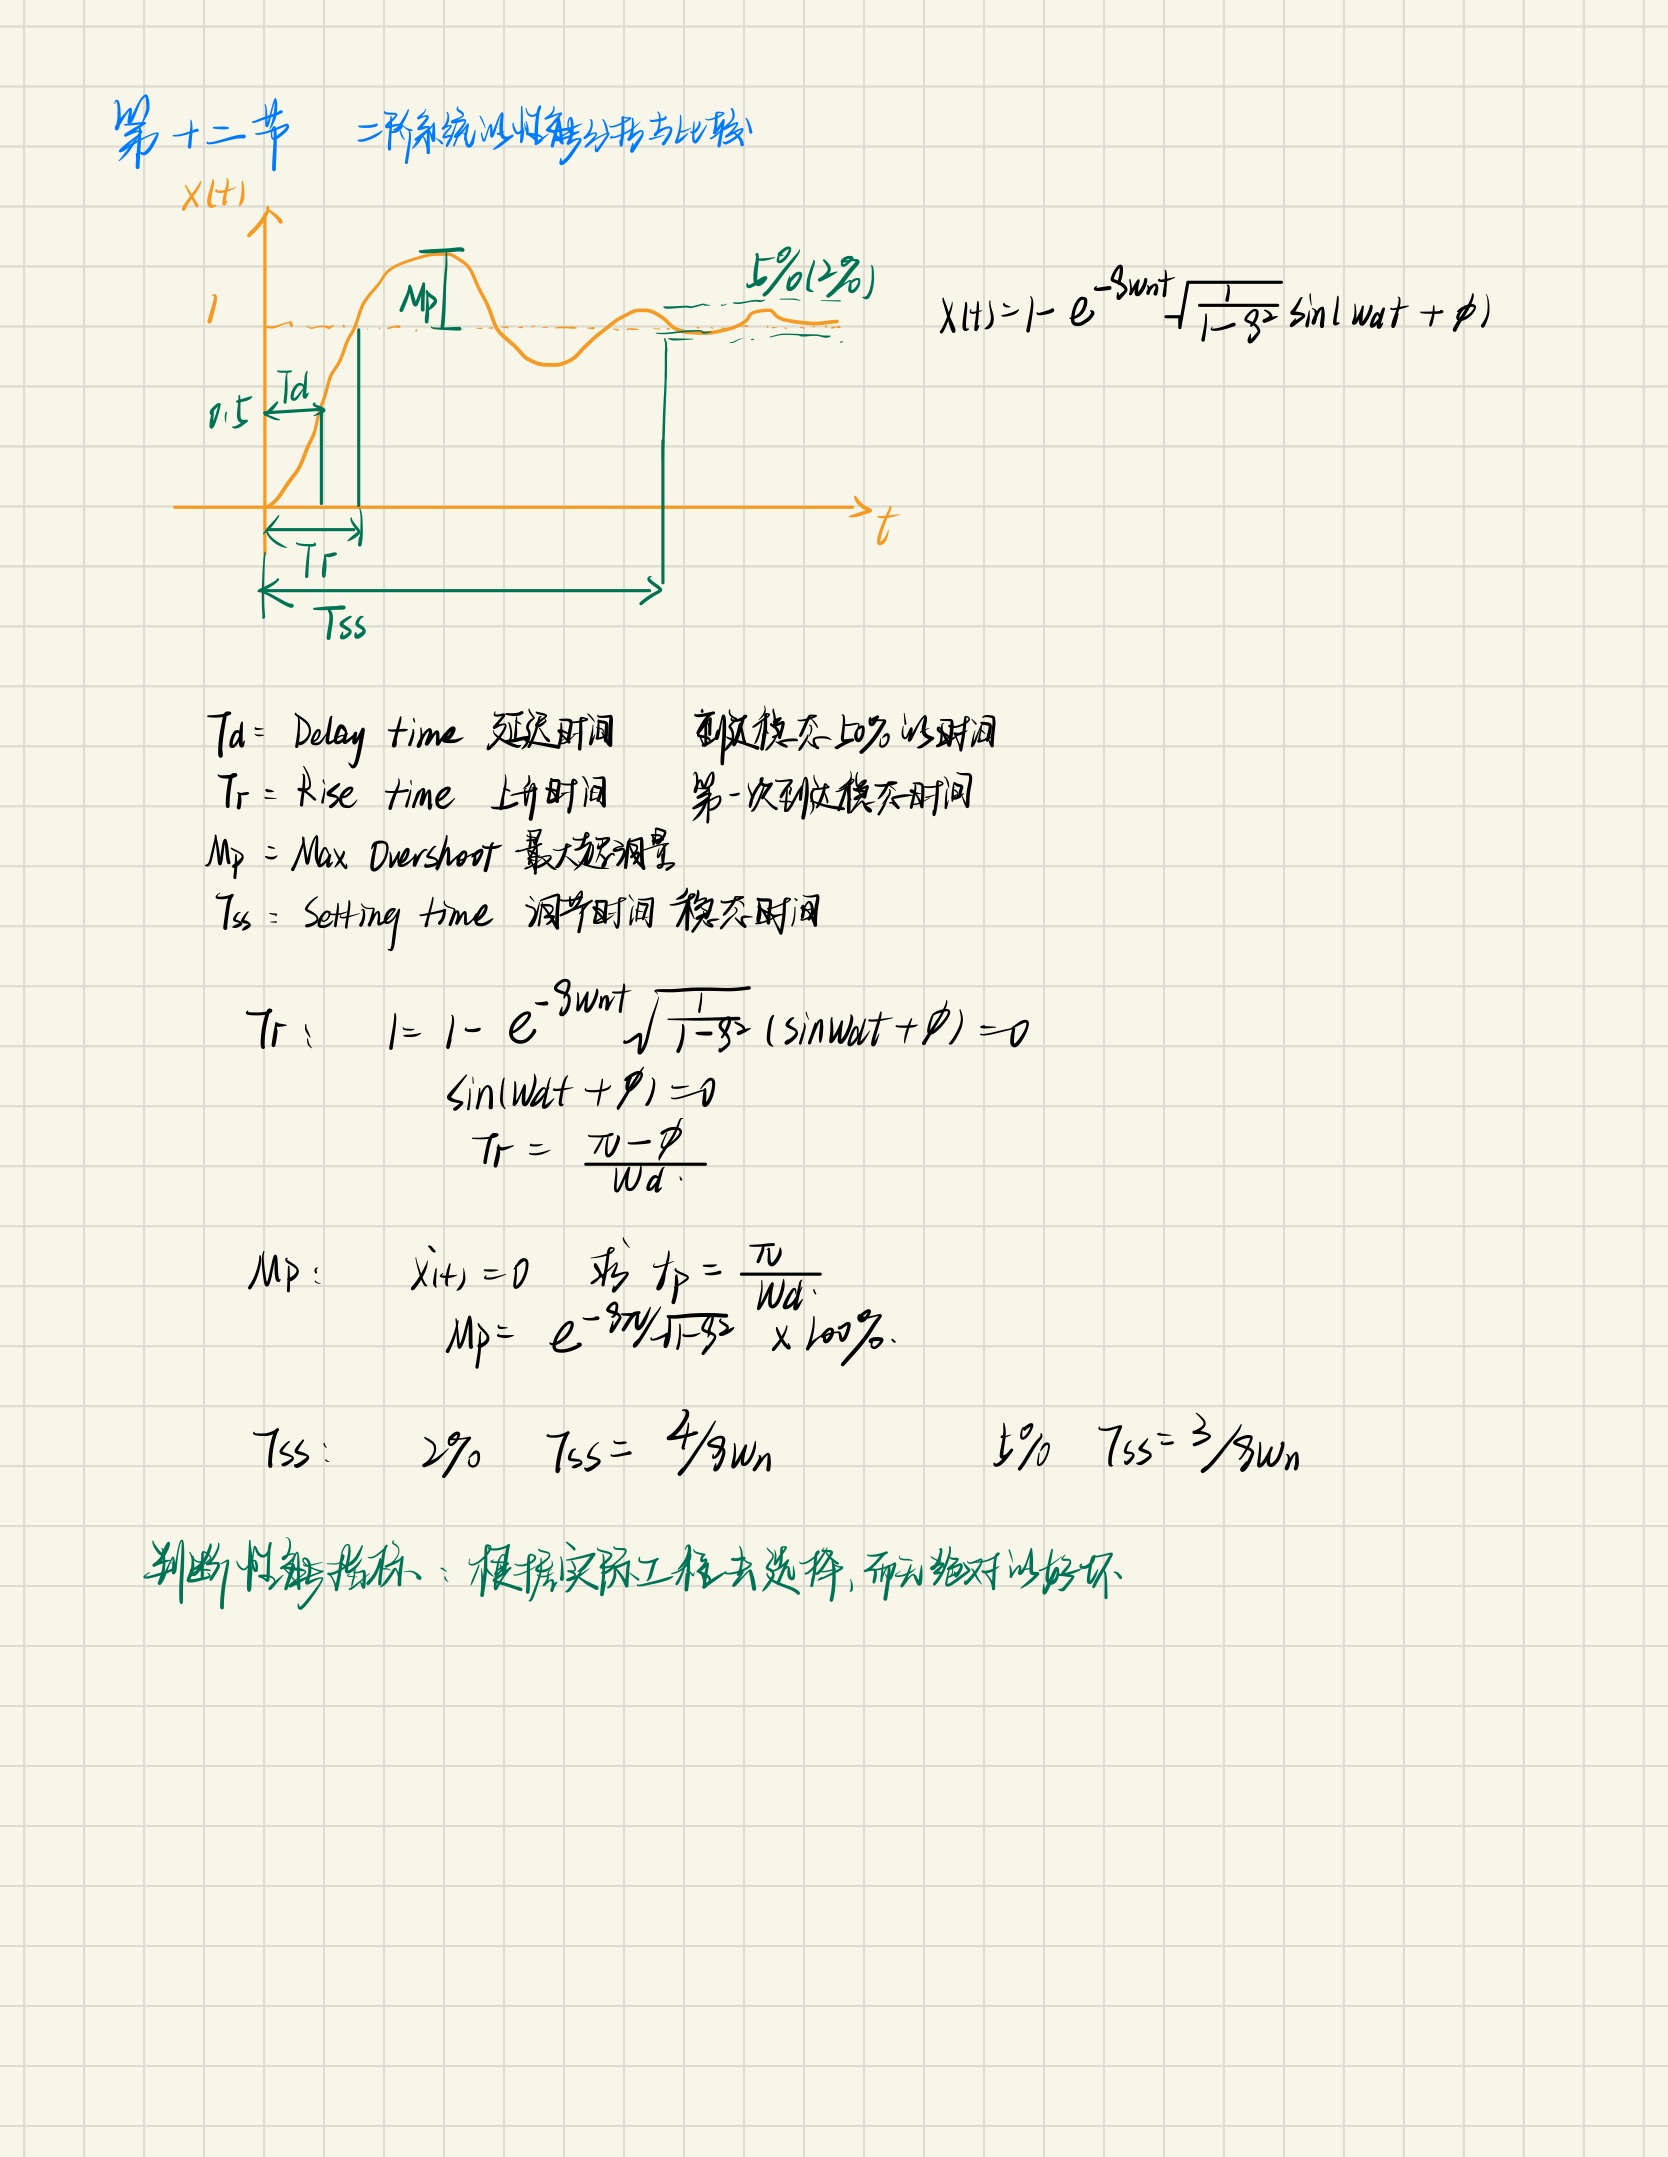 第十二节 二阶系统的性能分析与比较
x(t)
1
Mp
5%(2%)
x(t)=1-e^{-ζwnt}√(1/(1-ζ²)) sin(wdt+φ)
0.5
Td
t
Tr
Tss
Td= Delay time 延迟时间 到达稳态50%的时间
Tr= Rise time 上升时间 第一次到达稳态时间
Mp=Max Overshoot 最大超调量
Tss= Setting time 调节时间 稳态时间
Tr: 1=1-e^{-ζwnt}√(1/(1-ζ²)) (sinwdt+φ)=0
sin(wdt+φ)=0
Tr=(π-φ)/wd.
Mp: ẋ(t)=0 求 tp=π/wd.
Mp=e^{-ζπ/√(1-ζ²)} ×100%.
Tss: 2% Tss=4/ζwn 5% Tss=3/ζwn
判断性能指标:根据实际工程去选择,而无绝对的好坏